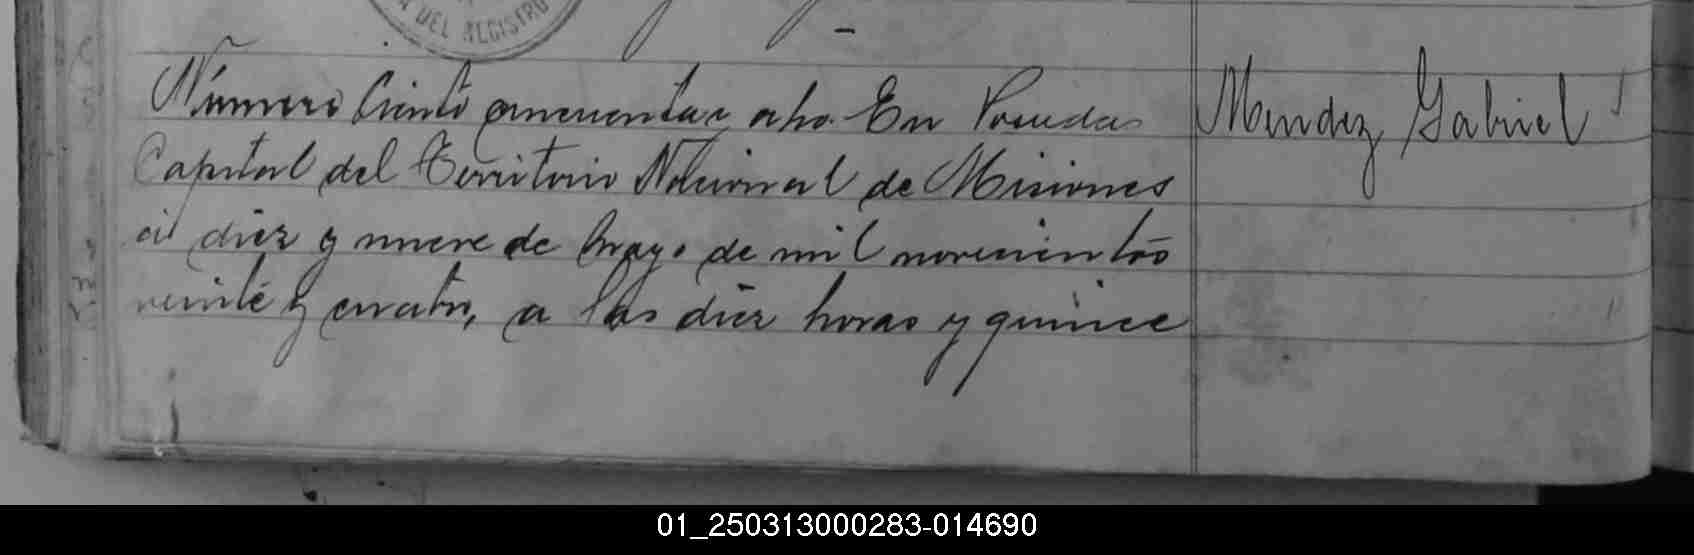 DEL REGISTRO
Número Ciento cincuenta y ocho. En Posadas
Mendez, Gabriel
Capital del Territorio Nacional de Misiones
a diez y nueve de Mayo de mil novecientos
veinte y cuatro, a las diez horas y quince
01_250313000283-014690